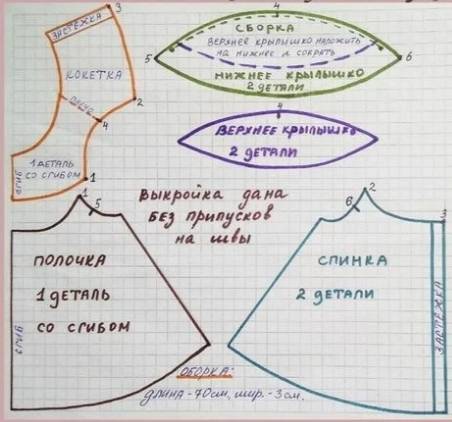 3
ЗАСТЕЖКА
КОКЕТКА
плечо
2
4
1 ДЕТАЛЬ
СО СГИБОМ
СГИБ
1
4
СБОРКА
ВЕРХНЕЕ КРЫЛЫШКО НАЛОЖИТЬ
НА НИЖНЕЕ И СОБРАТЬ
5
6
НИЖНЕЕ КРЫЛЫШКО
2 ДЕТАЛИ
4
ВЕРХНЕЕ КРЫЛЫШКО
2 ДЕТАЛИ
ВЫКРОЙКА ДАНА
БЕЗ ПРИПУСКОВ
НА ШВЫ
1
5
ПОЛОЧКА
1 ДЕТАЛЬ
СО СГИБОМ
СГИБ
2
6
3
СПИНКА
2 ДЕТАЛИ
ЗАСТЕЖКА
ОБОРКА:
ДЛИНА-70см, шир.-3см.